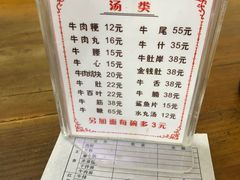 汤类
牛肉粳 12元 牛尾 55元
牛肉丸 16元 牛什 35元
牛腰 12元 牛肚岸 38元
牛心 15元 金钱肚 38元
牛肉纥块 20元 牛舌 38元
牛肚 22元 牛腩 38元
牛百叶 22元 鲨鱼片 15元
牛筋 38元 水丸汤 12元
牛鞭 65元
另加面每碗多3元